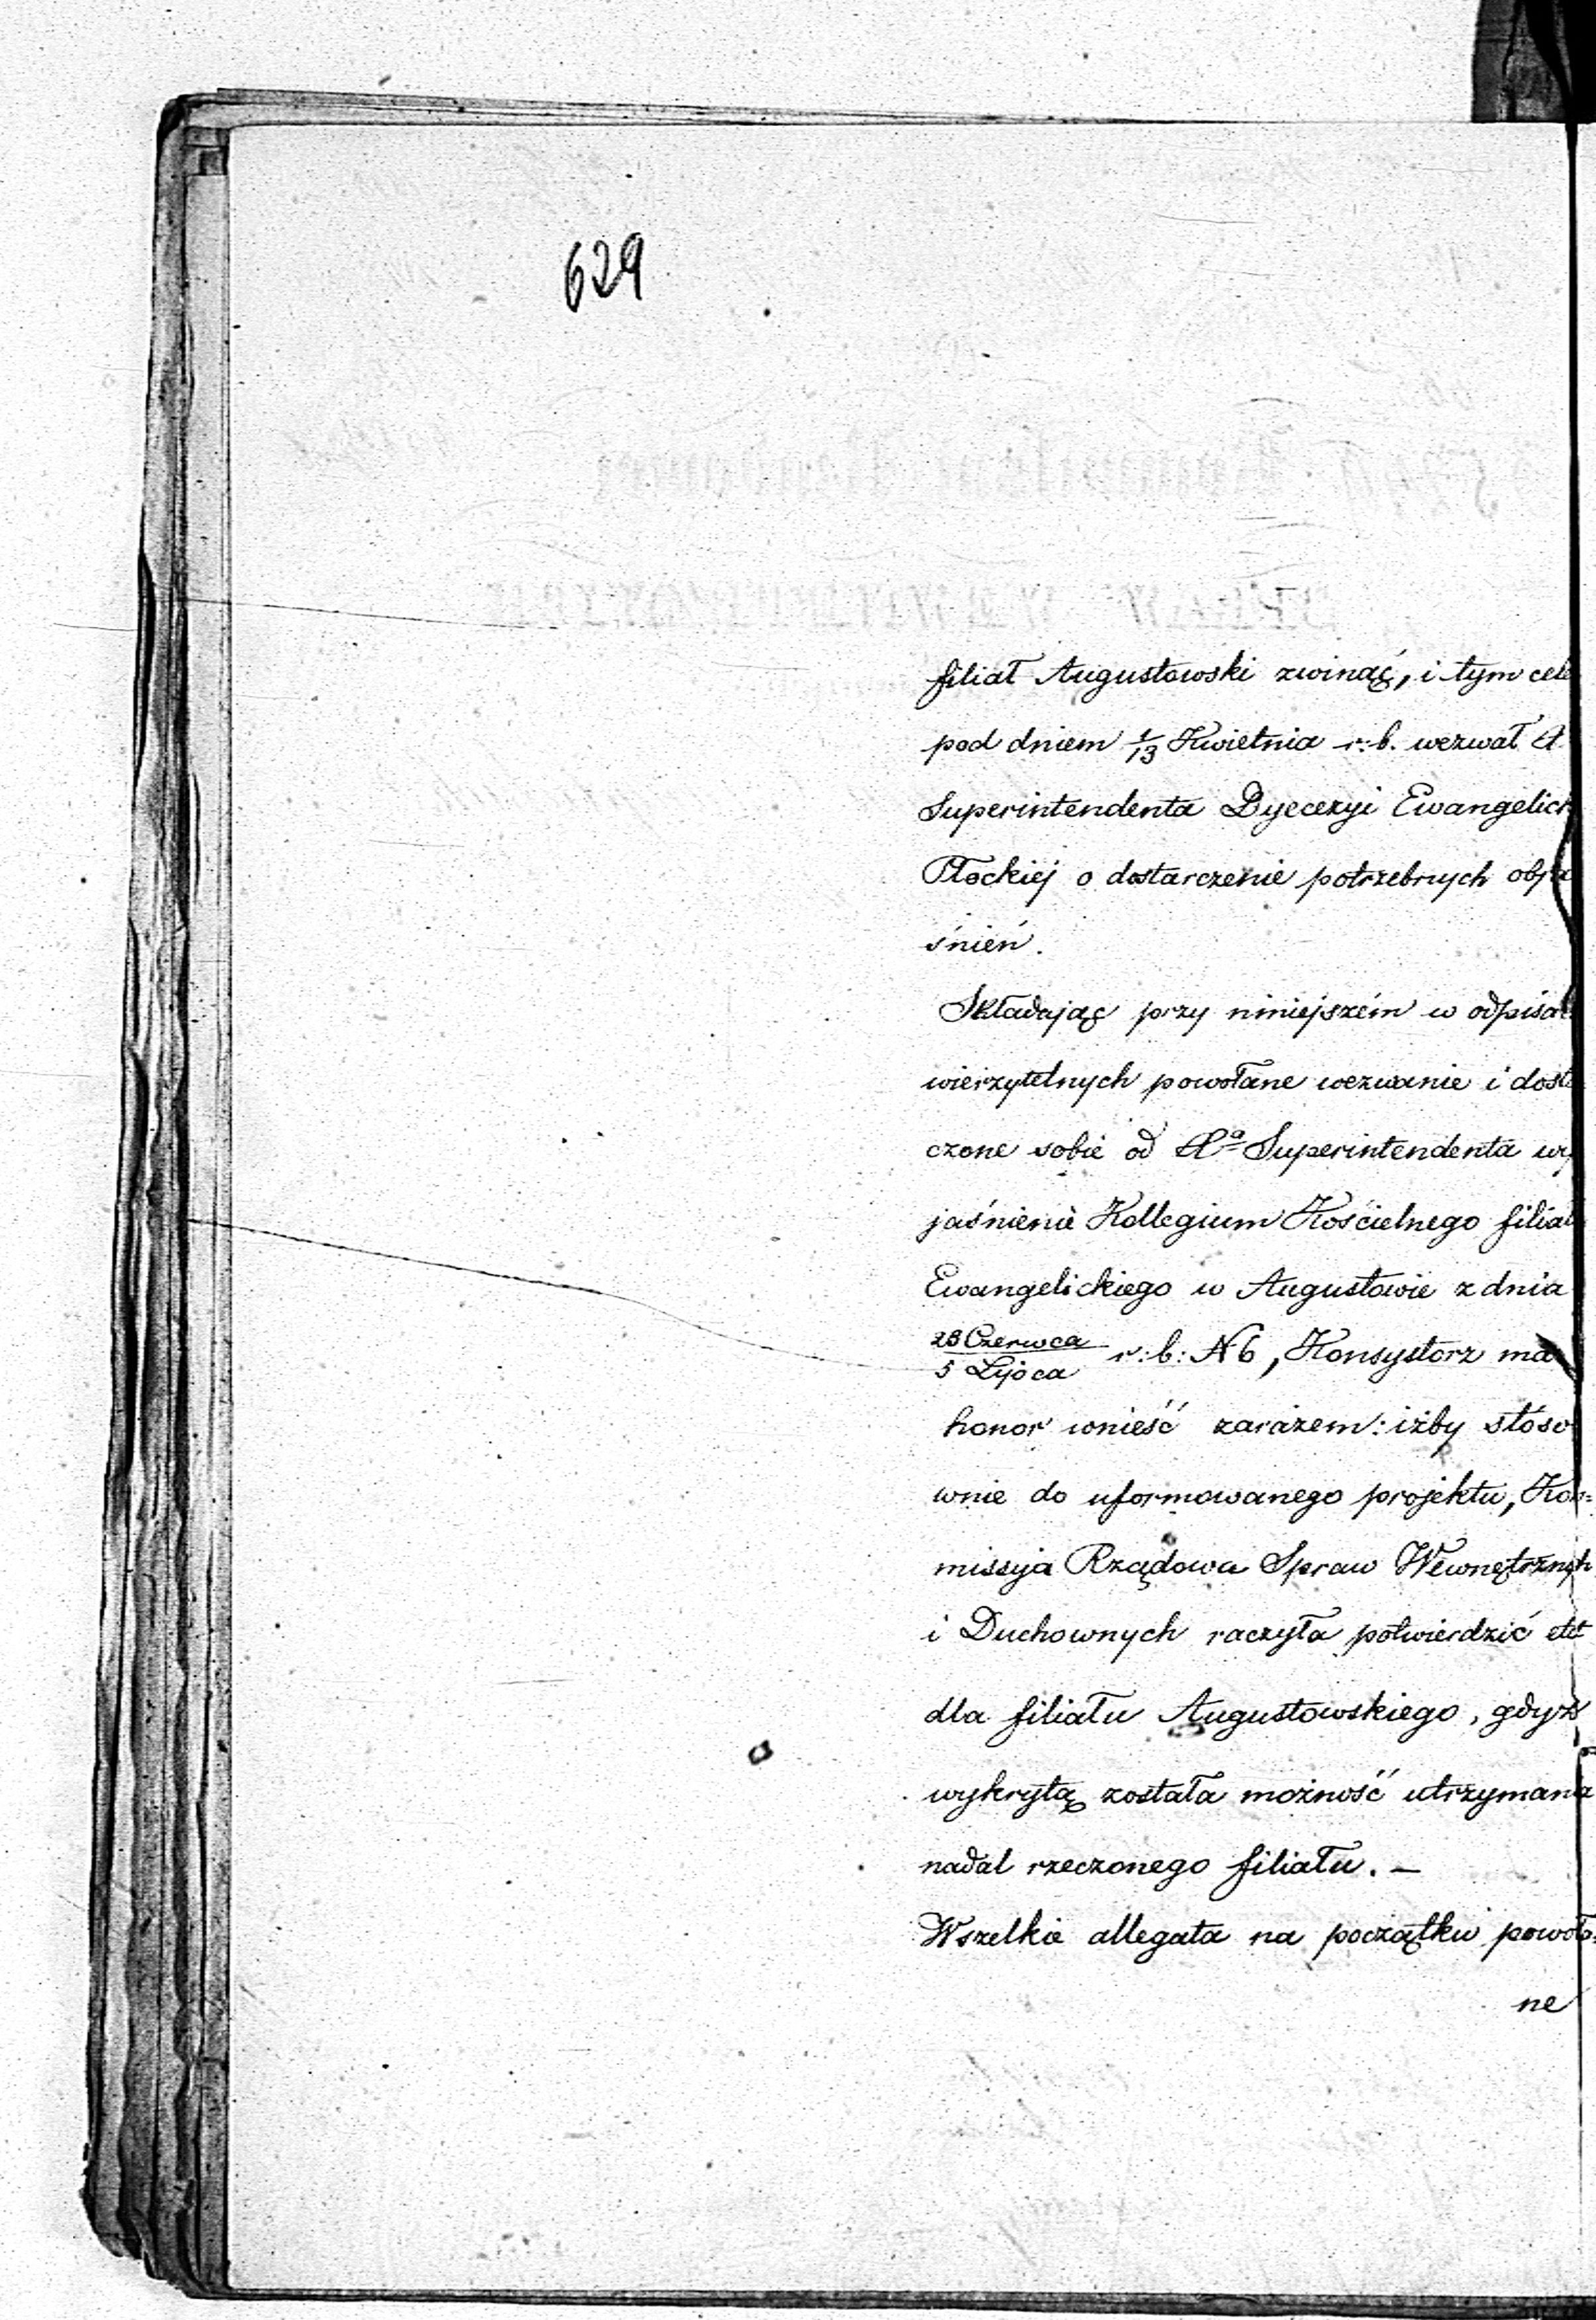 629
filiał Augustowski zwinąć, i tym cele
pod dniem 1/13 Kwietnia r: b. wezwał
Superintendenta Dyecezyi Ewangelick
Płockiej o dostarczenie potrzebnych obja
śnień.
Składając przy niniejszém w odpisa
wierzytelnych powołane wezwanie i dosta
czone sobie od Superintendenta wy
jaśnienie Kollegium Kościelnego filiał
Ewangelickiego w Augustowie z dnia
23 Czerwca
5 Lipca r: b: N 6, Konsystorz ma
honor wnieść zarazem: iżby stóso
wnie do uformowanego projektu, Kom=
missyja Rządowa Spraw Wewnętrznych
i Duchownych raczyła potwierdzić etat
dla filiału Augustowskiego, gdyż
wykrytą została możność utrzymania
nadal rzeczonego filiału. —
Wszelkie allegata na początku powoła=
ne